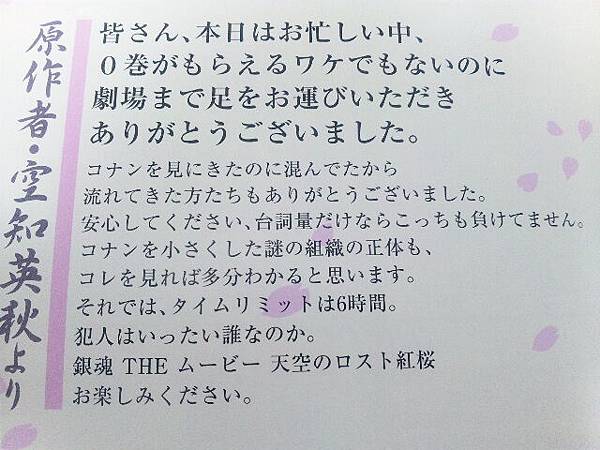 原作者・空知英秋より
皆さん、本日はお忙しい中、
0巻がもらえるワケでもないのに
劇場まで足をお運びいただき
ありがとうございました。
コナンを見にきたのに混んでたから
流れてきた方たちもありがとうございました。
安心してください、台詞量だけならこっちも負けてません。
コナンを小さくした謎の組織の正体も、
コレを見れば多分わかると思います。
それでは、タイムリミットは6時間。
犯人はいったい誰なのか。
銀魂 THE ムービー 天空のロスト紅桜
お楽しみください。